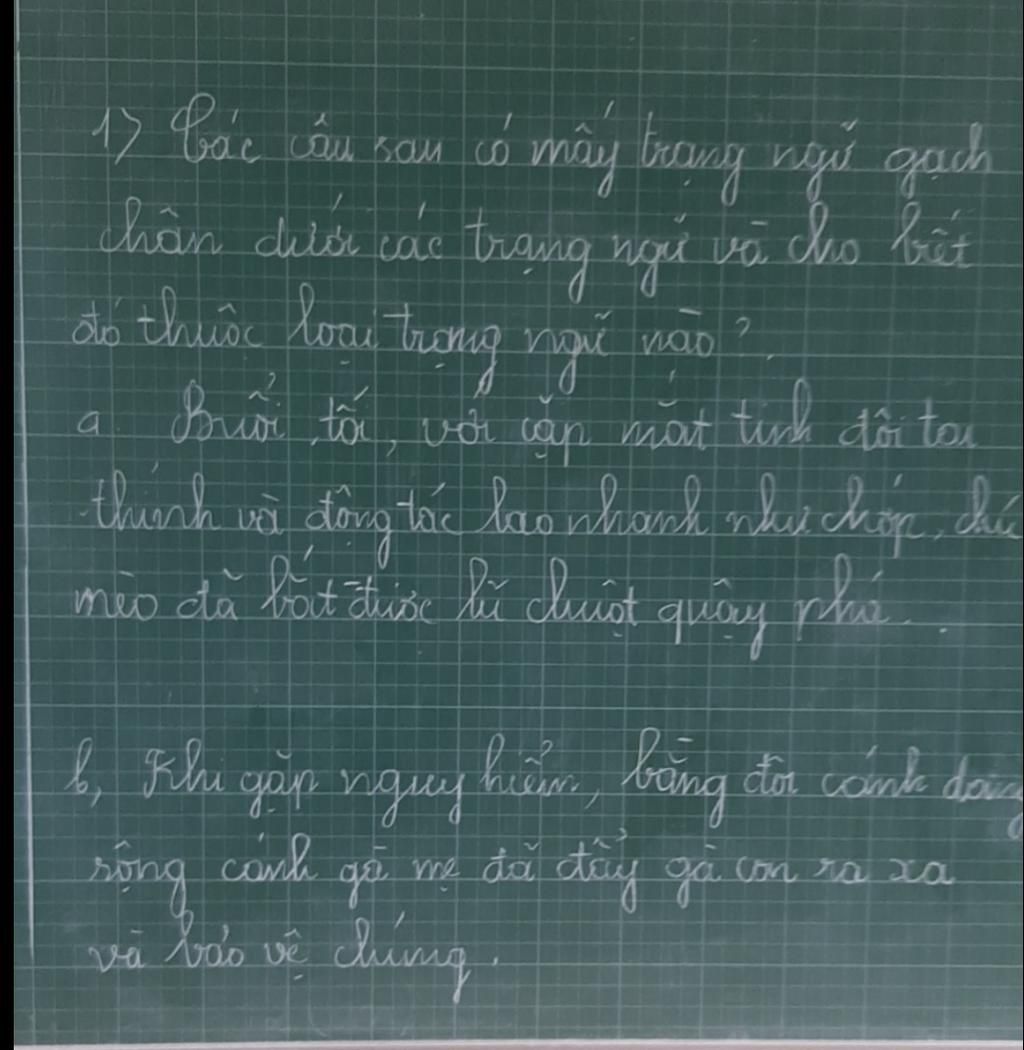 1) Các câu sau có mấy trạng ngữ gạch
chân dưới các trạng ngữ và cho biết
đó thuộc loại trạng ngữ nào?
a. Buổi tối, với cặp mắt tinh đôi tai
thính và động tác lao nhanh như chớp, chú
mèo đã bắt được lũ chuột quậy phá.
b, Khi gặp nguy hiểm, bằng đôi cánh dang
rộng cánh gà mẹ đã đẩy gà con ra xa
và bảo vệ chúng.